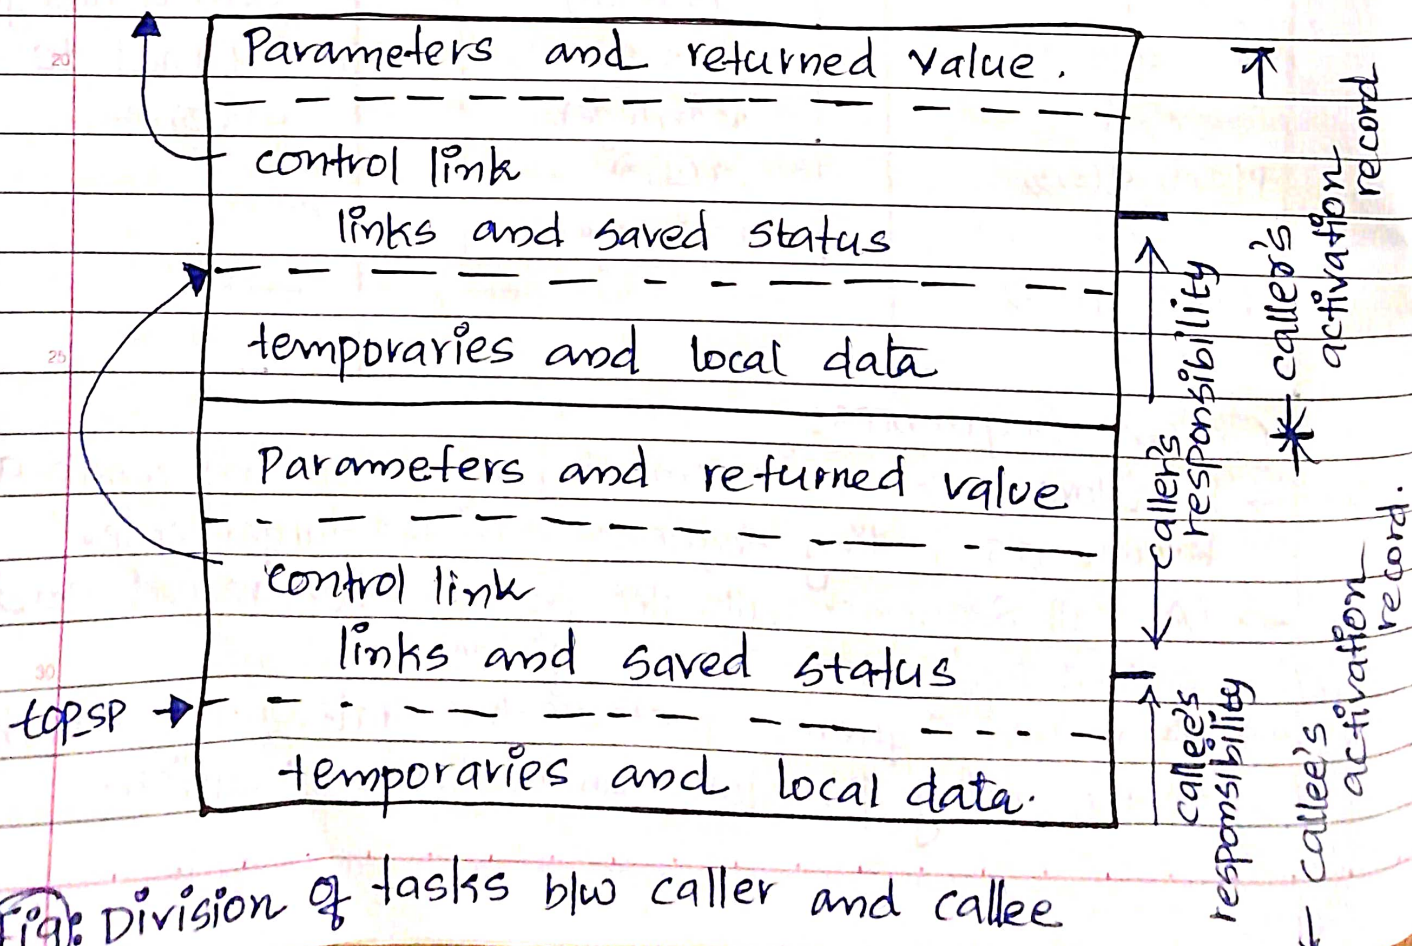 20
Parameters and returned value.
control link
links and saved status
25
temporaries and local data
Parameters and returned value
control link
links and saved status
30
top_sp
temporaries and local data.
caller's
responsibility
callee's
responsibility
caller's
activation
record
callee's
activation
record.
Fig: Division of tasks b/w caller and callee